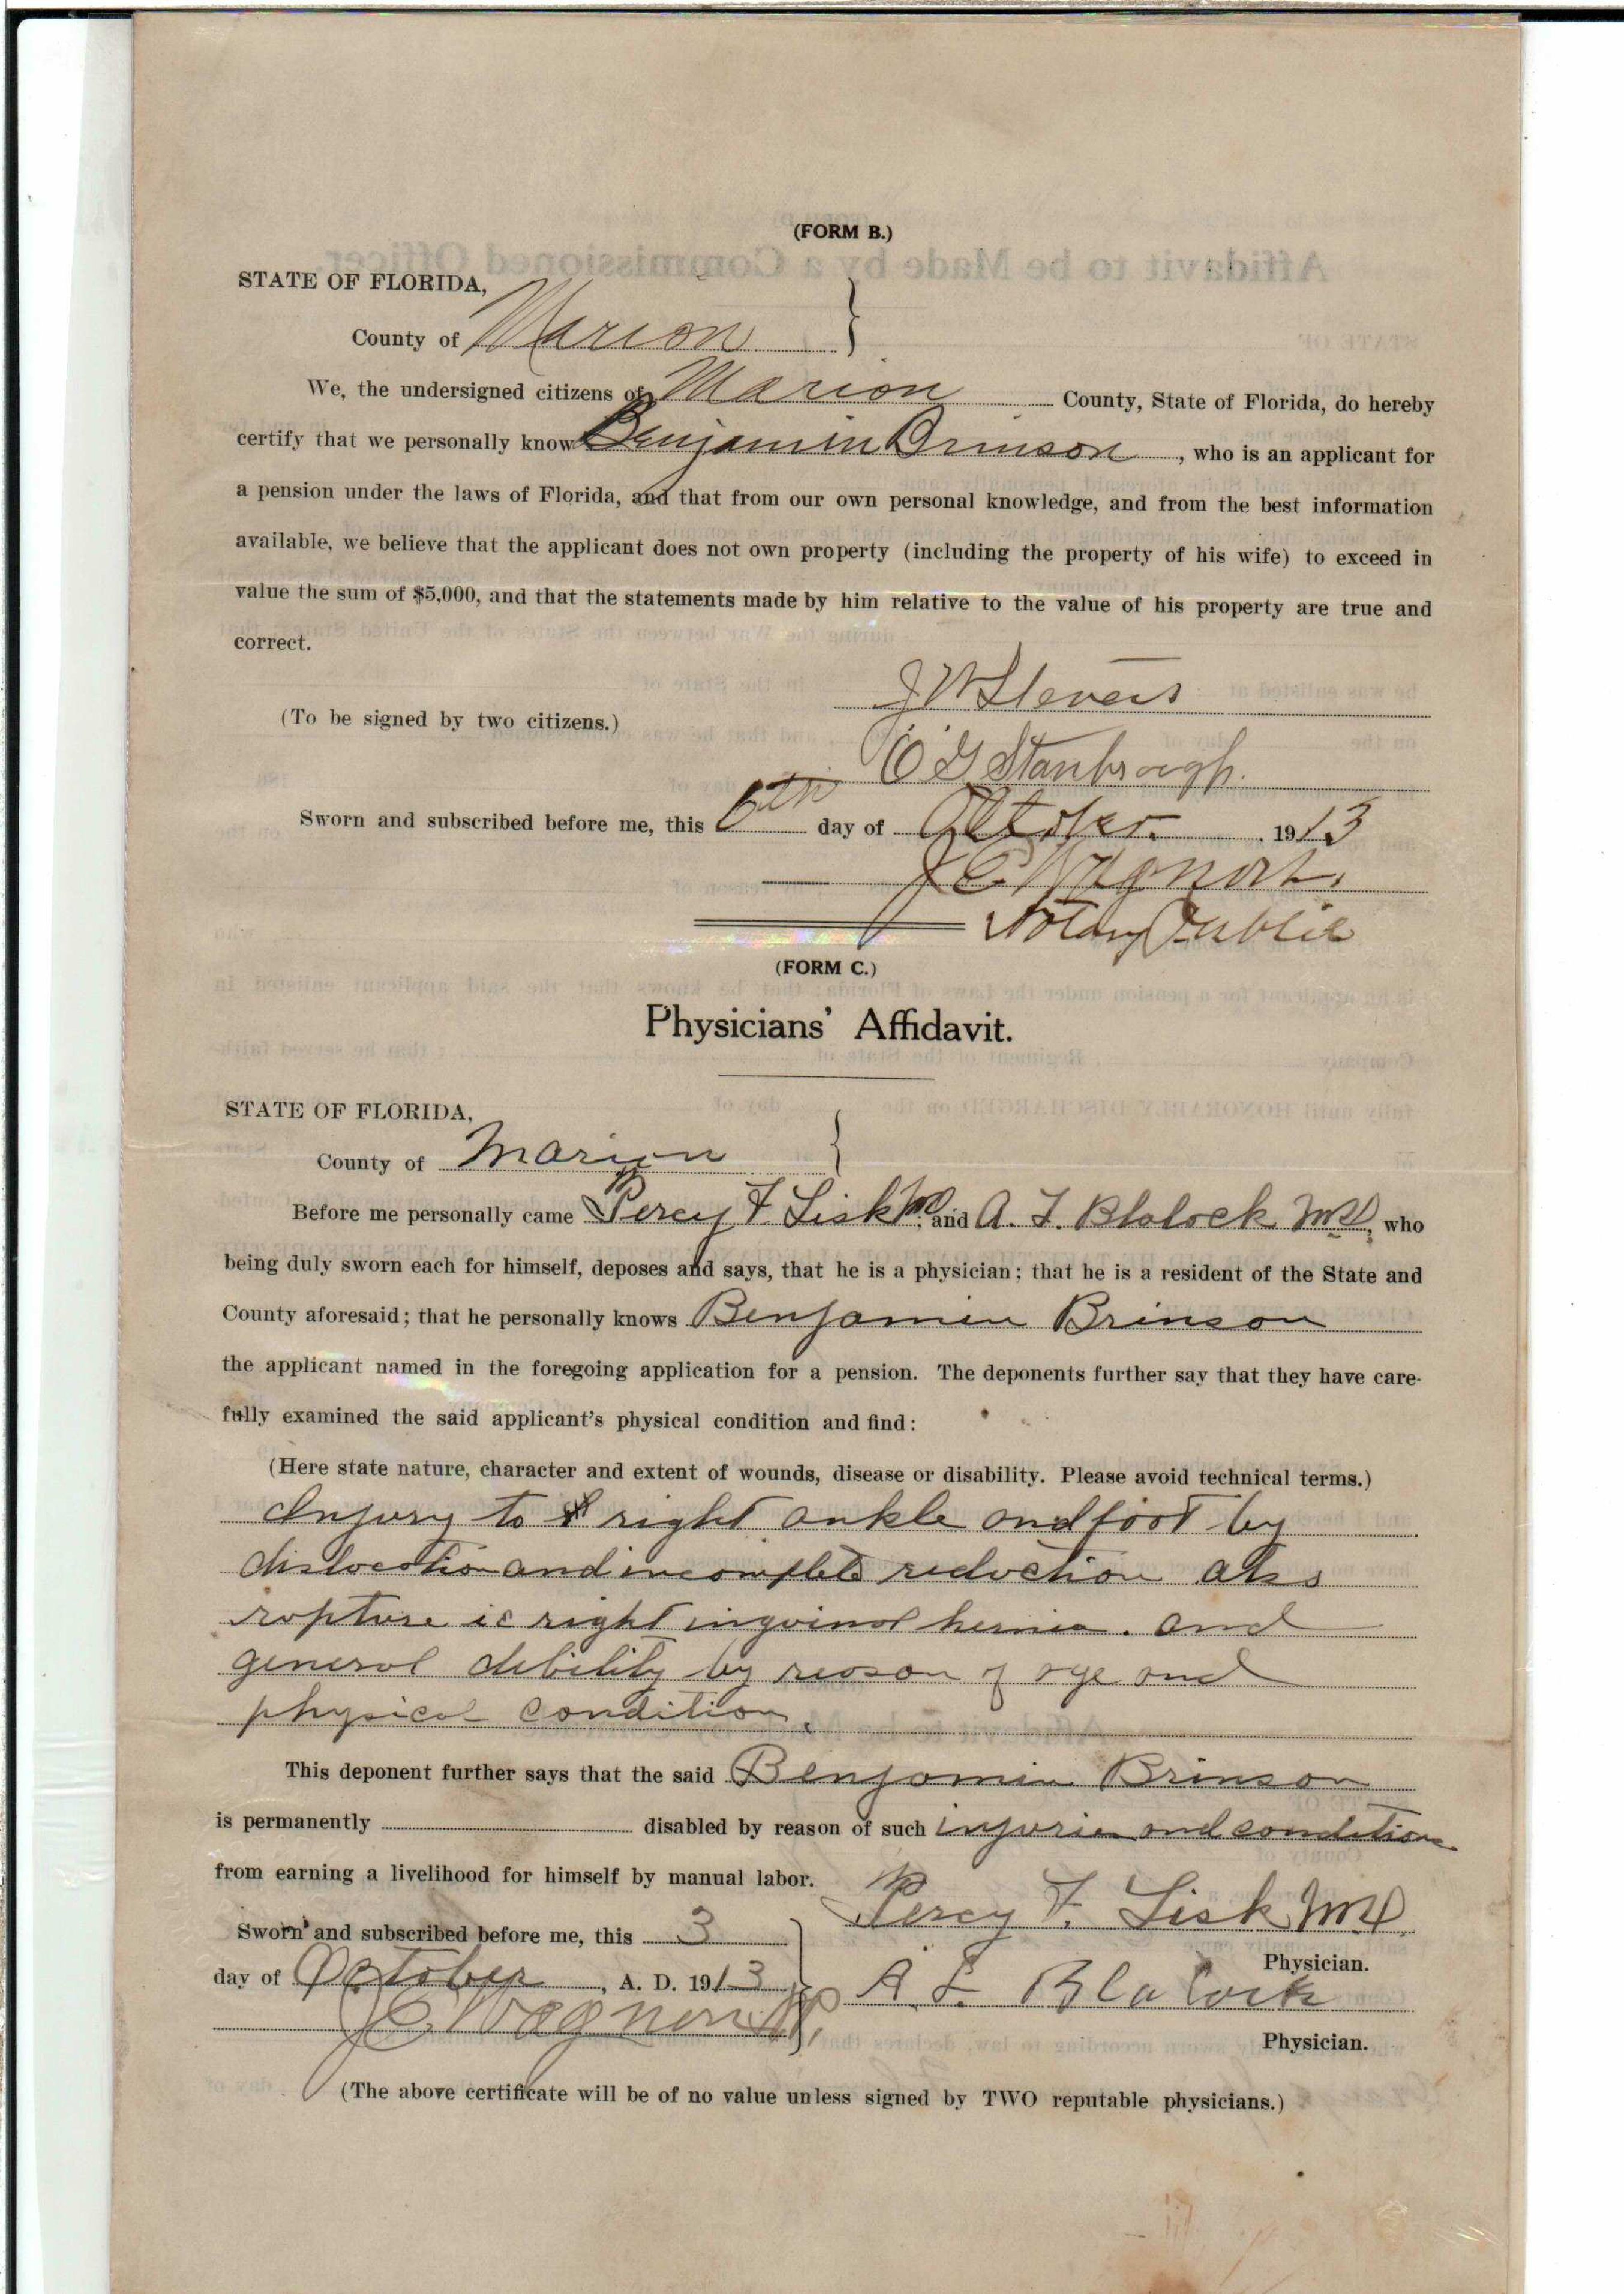 (FORM B.)
STATE OF FLORIDA,
County of Marion
We, the undersigned citizens of Marion County, State of Florida, do hereby
certify that we personally know Benjamin Brinson, who is an applicant for
a pension under the laws of Florida, and that from our own personal knowledge, and from the best information
available, we believe that the applicant does not own property (including the property of his wife) to exceed in
value the sum of $5,000, and that the statements made by him relative to the value of his property are true and
correct.
J W Stevens
(To be signed by two citizens.)
O G Stanbrough.
Sworn and subscribed before me, this 6th day of October. 1913
J C Wagnon.
Notary Public
(FORM C.)
Physicians' Affidavit.
STATE OF FLORIDA,
County of Marion
Before me personally came Percy F. Lisk MD, and A. L. Blalock MD, who
being duly sworn each for himself, deposes and says, that he is a physician; that he is a resident of the State and
County aforesaid; that he personally knows Benjamin Brinson
the applicant named in the foregoing application for a pension. The deponents further say that they have care-
fully examined the said applicant's physical condition and find:
(Here state nature, character and extent of wounds, disease or disability. Please avoid technical terms.)
Injury to right ankle and foot by
dislocation and incomplete reduction also
rupture ie right inguinal hernia. and
general debility by reason of age and
physical condition.
This deponent further says that the said Benjamin Brinson
is permanently disabled by reason of such injuries and condition
from earning a livelihood for himself by manual labor.
Percy F. Lisk MD.
Sworn and subscribed before me, this 3
Physician.
day of October, A. D. 1913
A L. Blalock
J C Wagnon NP,
Physician.
(The above certificate will be of no value unless signed by TWO reputable physicians.)